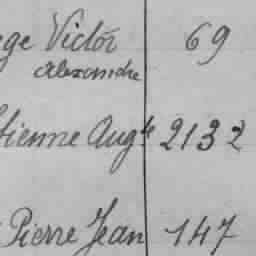 ege Victor 69
Alexandre
tienne Augte 2132
Pierre Jean 147